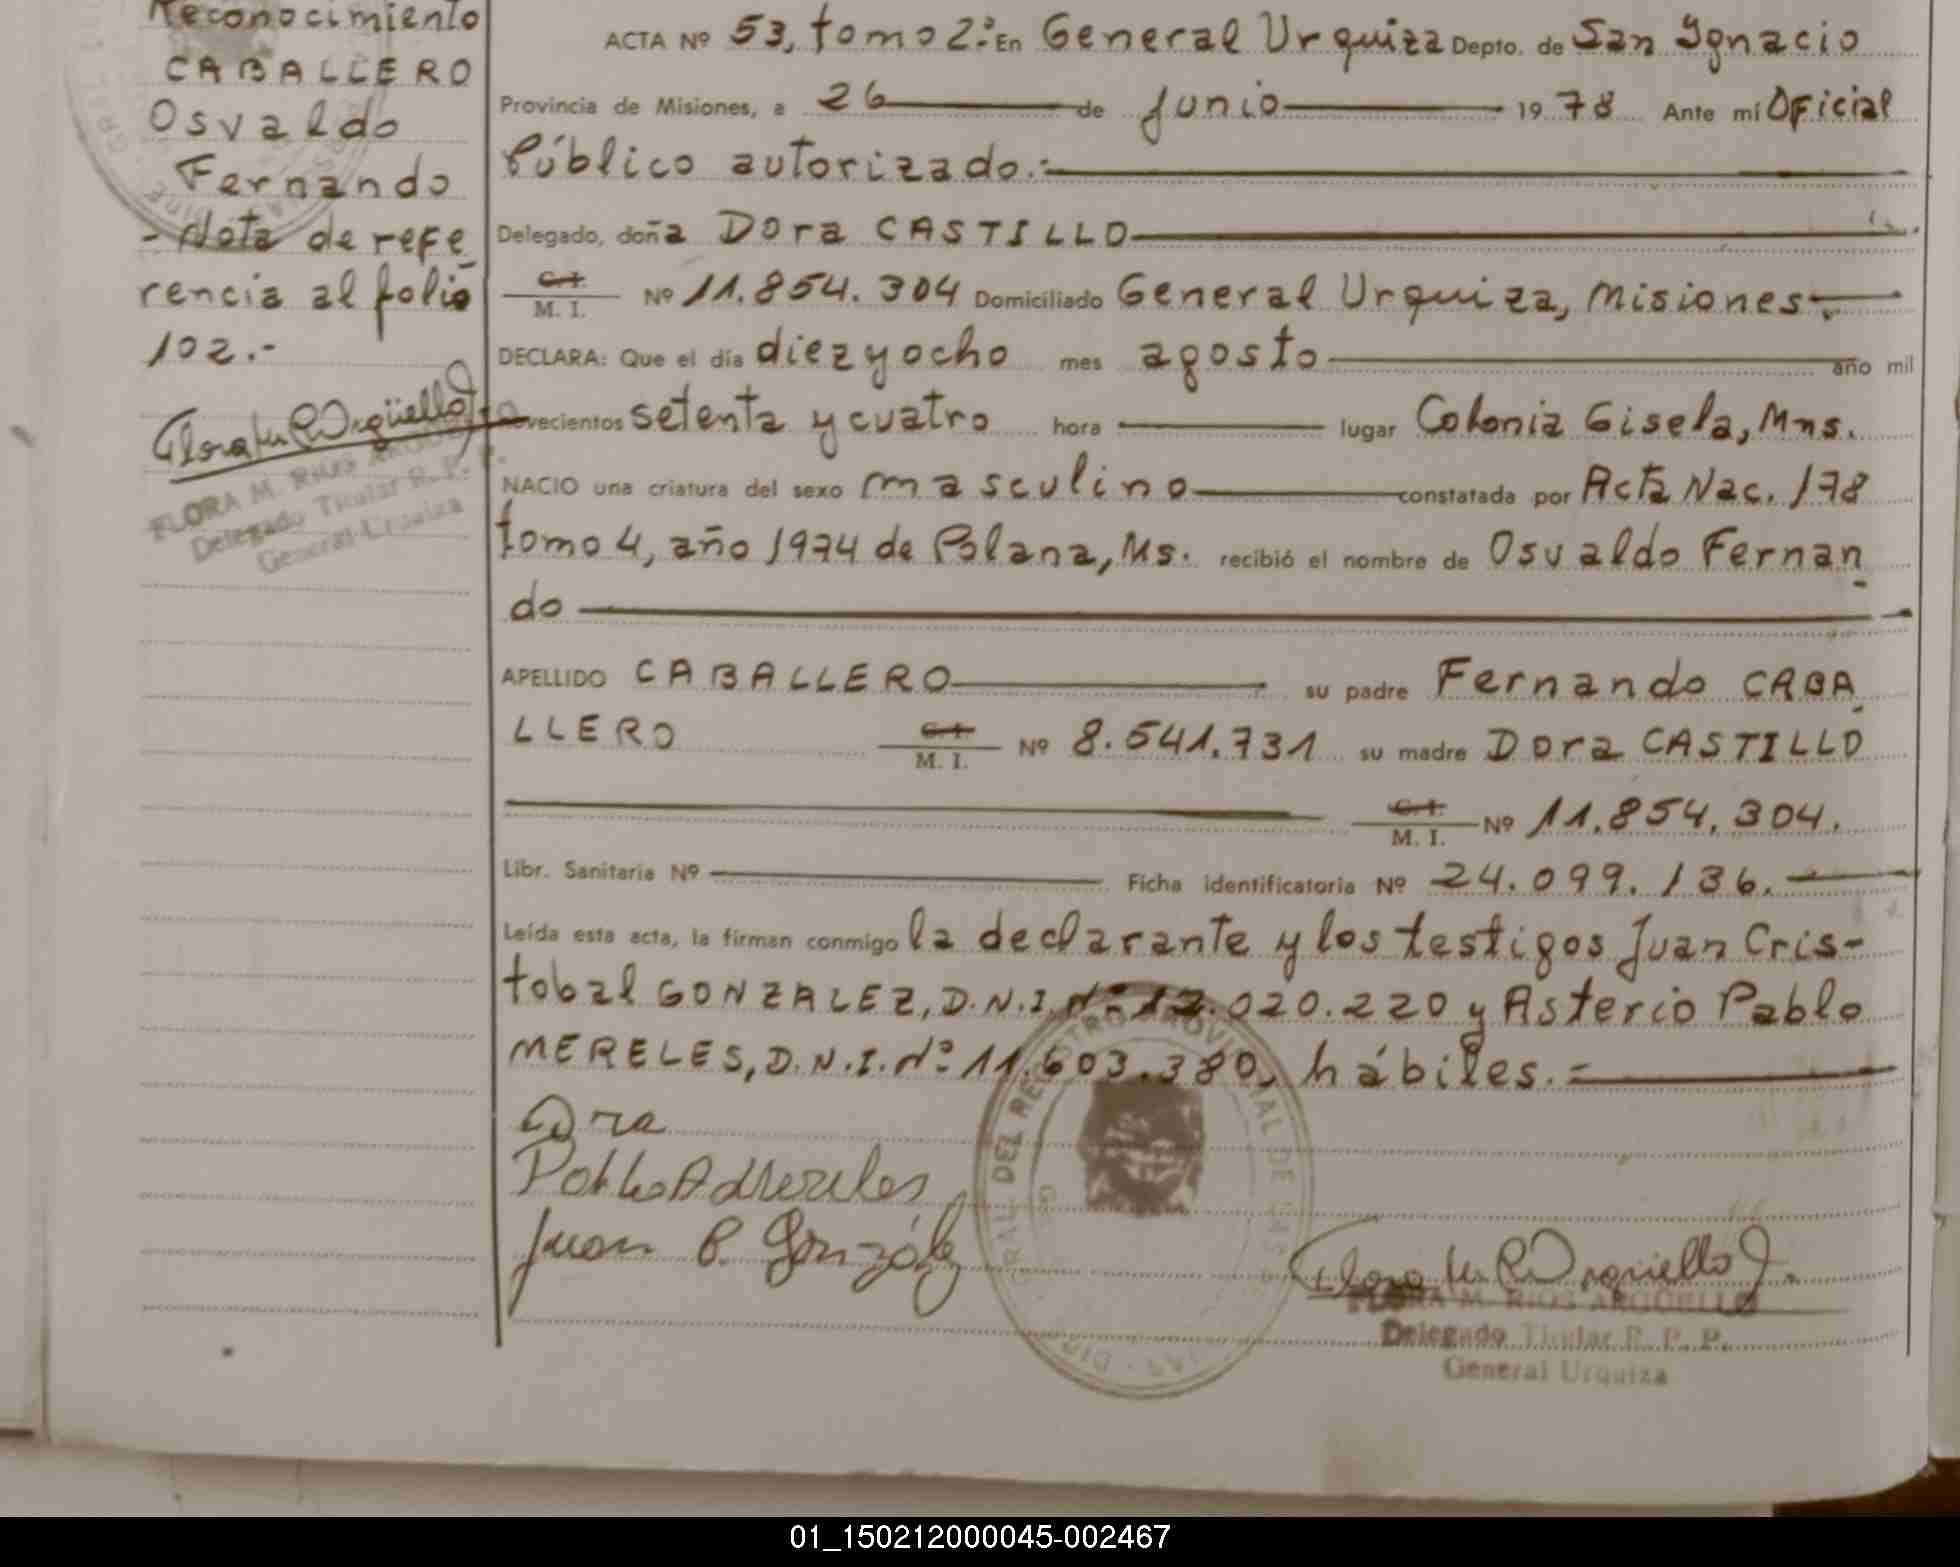 Reconocimiento
CABALLERO
Osvaldo
Fernando
- Nota de refe
rencia al folio
102.-
FLORA M. RIOS ARGÜELLO
Delegado Titular R. P. P.
General Urquiza
ACTA Nº 53, tomo 2º En General Urquiza Depto. de San Ignacio
Provincia de Misiones, a 26 de Junio 1978 Ante mí Oficial
Público autorizado.-
Delegado, doña Dora CASTILLO
C. I.
M. I. Nº 11.854.304 Domiciliado General Urquiza, Misiones.
DECLARA: Que el día diez y ocho mes agosto año mil
novecientos setenta y cuatro hora lugar Colonia Gisela, Mns.
NACIO una criatura del sexo masculino constatada por Acta Nac. 178
tomo 4, año 1974 de Polana, Ms. recibió el nombre de Osvaldo Fernan
do
APELLIDO CABALLERO su padre Fernando CABA
LLERO C. I. M. I. Nº 8.541.731 su madre Dora CASTILLO
C. I. M. I. Nº 11.854.304.
Libr. Sanitaria Nº Ficha identificatoria Nº 24.099.136.
Leída esta acta, la firman conmigo la declarante y los testigos Juan Cris-
tobal GONZALEZ, D.N.I. Nº 12.020.220 y Asterio Pablo
MERELES, D.N.I. Nº 11.603.380, hábiles.-
Dora
Pablo A Mereles
Juan C. González
GRAL. DEL REGISTRO PROVINCIAL DE LAS
FLORA M. RIOS ARGÜELLO
Delegado Titular R. P. P.
General Urquiza
01_150212000045-002467